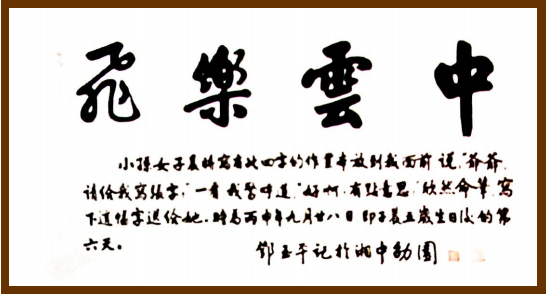 飛樂雲中
小孫女子晨將寫有此四字的作業本放到我面前說，“爺爺，
請給我寫張字，”一看我暗呼道“好啊，有點意思”欣然命筆，寫
下這幅字送給她。時爲丙申年九月廿八日即子晨五歲生日後的第
六天。
鄧玉平記於湘中幼園